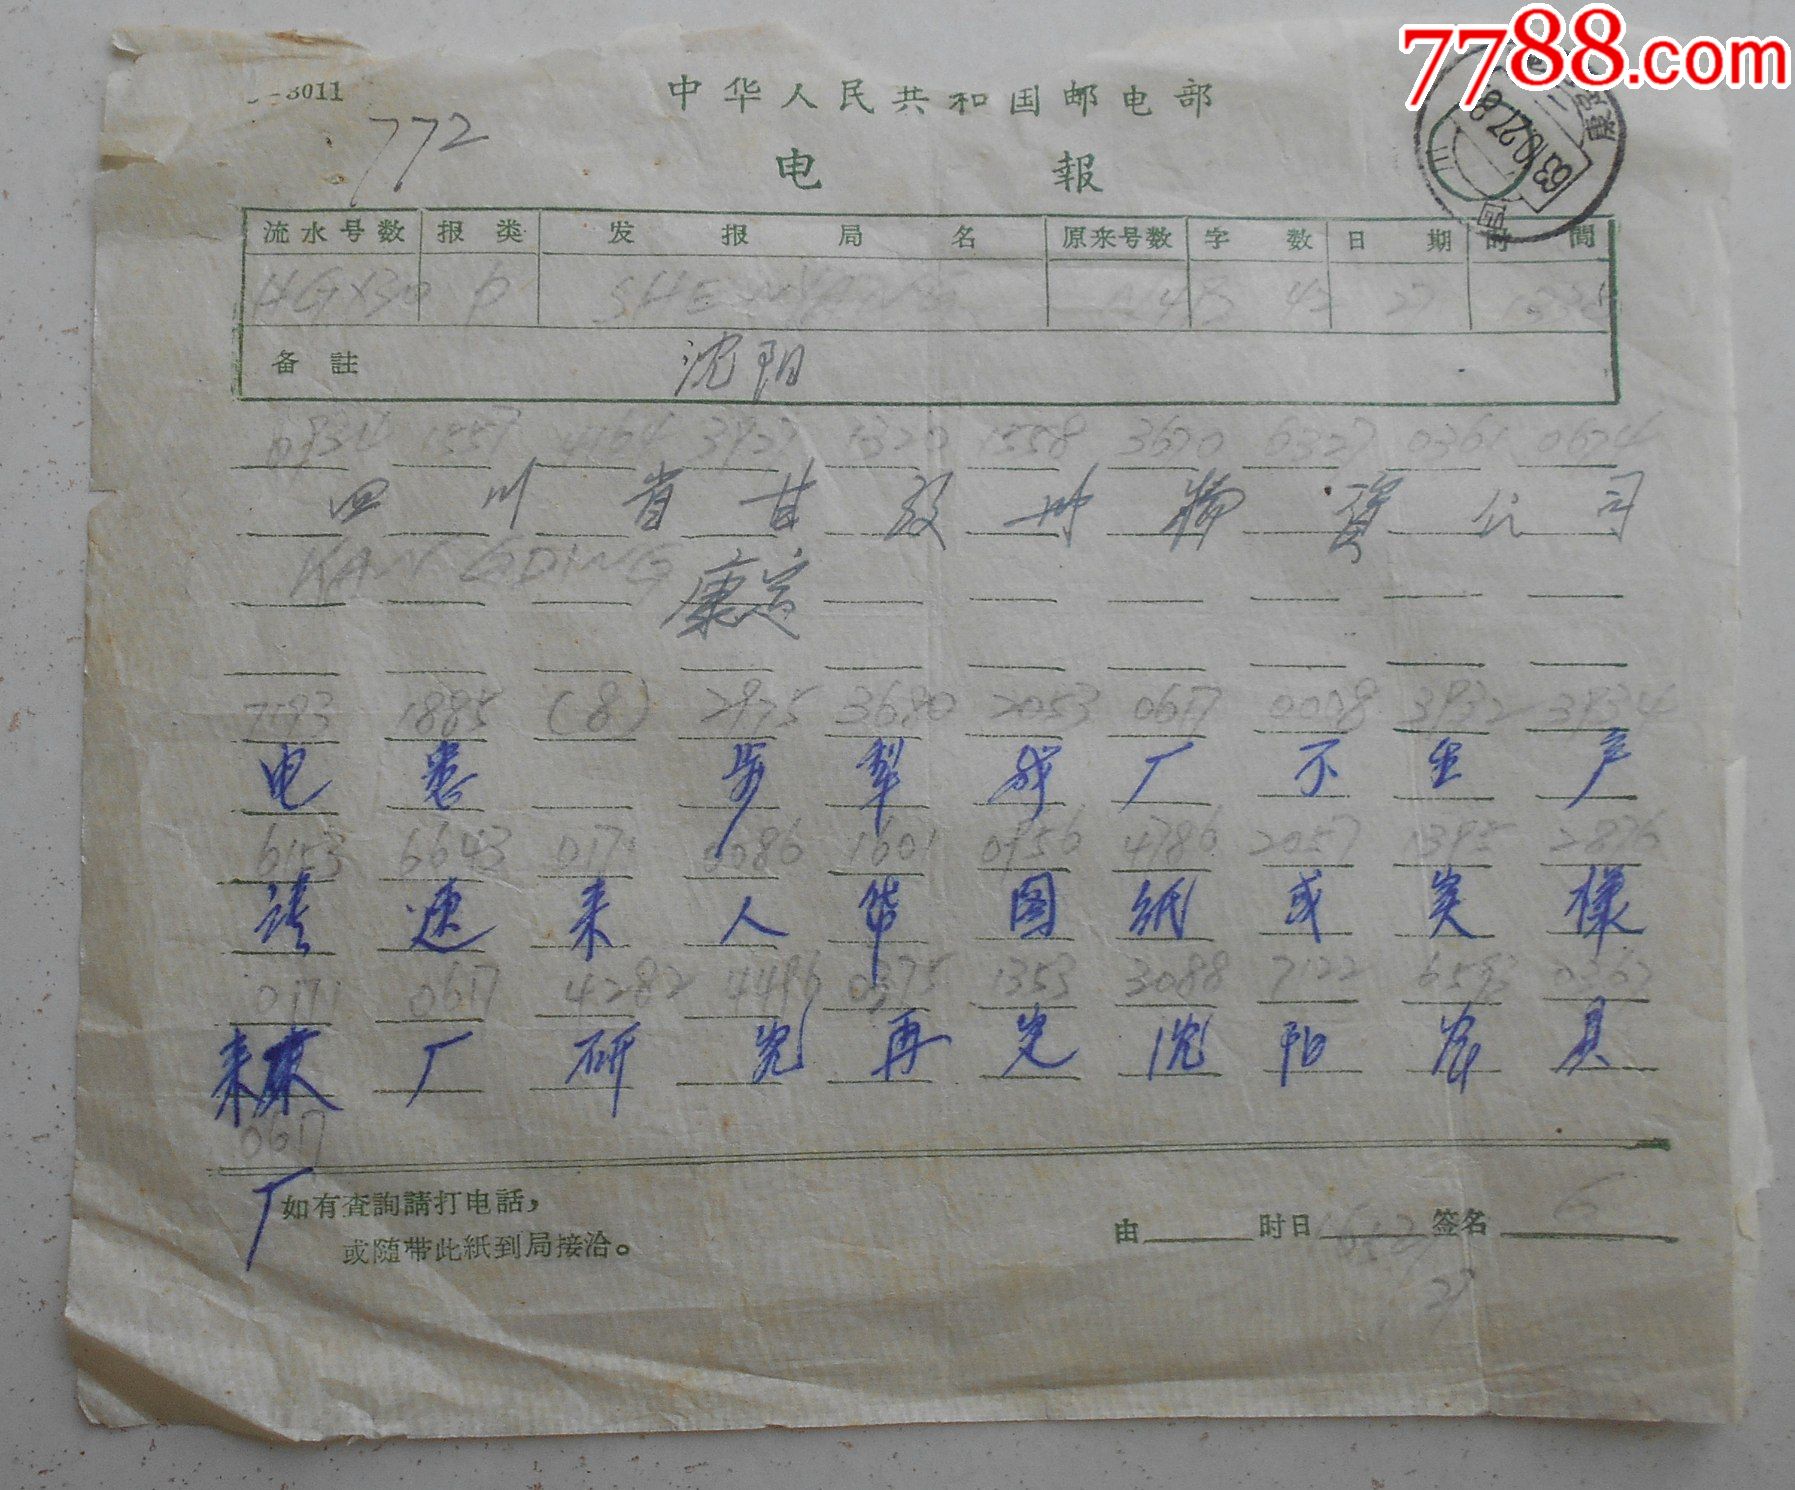 7788.com
中华人民共和国邮电部
3011
772
电 報
63.10.27.8
康定
流水号数 报类 发报局名 原来号数 字数 日期 时間
HGX30 P SHENYANG 42 27
备註 沈阳
1557 4164 3927 1320 1558 3670 6327 0361 0674
四川省甘孜州物資公司
KANGDING 康定
7193 1885 (8) 2975 3680 2053 0617 0008 3932 3934
电悉 步犁我厂不生产
6153 6643 0171 0086 1601 0956 4786 2057 1395 2876
请速来人带图纸或实様
0171 0617 4282 4496 0375 1353 3088 7122 6593 0367
来厂研究再定沈阳农具
0617
厂
如有査詢請打电話，
或随带此紙到局接洽。
由 时日 签名
27